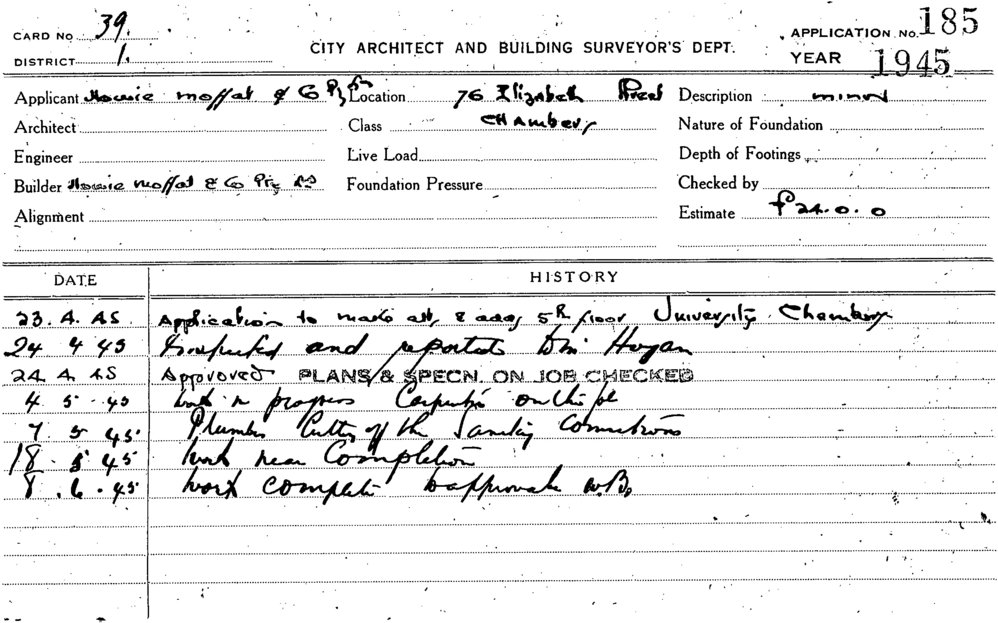 CARD No 39.
DISTRICT 1.
CITY ARCHITECT AND BUILDING SURVEYOR'S DEPT.
APPLICATION No. 185
YEAR 1945
Applicant Howie Moffat & Co Pty Location 76 Elizabeth Street Description minor
Architect Class Chambers Nature of Foundation
Engineer Live Load Depth of Footings
Builder Howie Moffat & Co Pty Ld Foundation Pressure Checked by
Alignment Estimate £24.0.0
DATE HISTORY
23.4.45 Application to make alts & adds 5th floor University Chambers
24 4 45 Inspected and reported to Mr Hogan
24.4.45 Approved PLANS & SPECN. ON JOB CHECKED
4 5 45 Work in progress Carpenters on the job
7 5 45 Plumber Cutting off the Sanitary Connections
18 5 45 Work near Completion
8.6.45 Work complete to approval W.B.